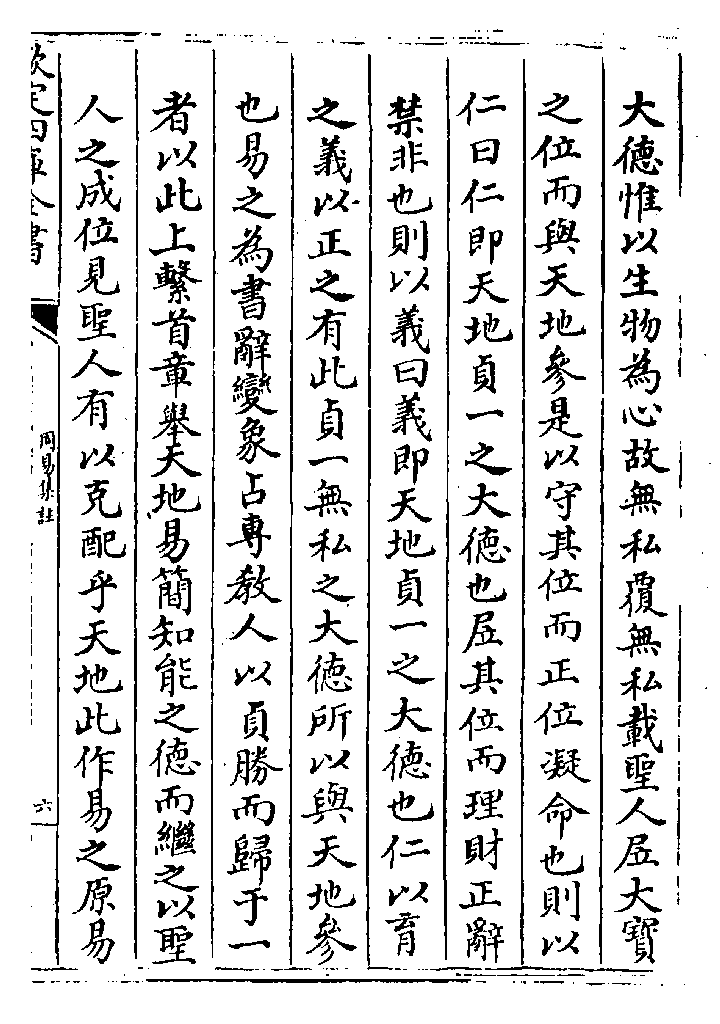 大德惟以生物為心故無私覆無私載聖人居大寶
之位而與天地參是以守其位而正位凝命也則以
仁曰仁即天地貞一之大德也居其位而理財正辭
禁非也則以義曰義即天地貞一之大德也仁以育
之義以正之有此貞一無私之大德所以與天地參
也易之為書辭變象占專教人以貞勝而歸于一
者以此上繫首章舉天地易簡知能之德而繼之以聖
人之成位見聖人有以克配乎天地此作易之原易
欽定四庫全書
周易集註
六